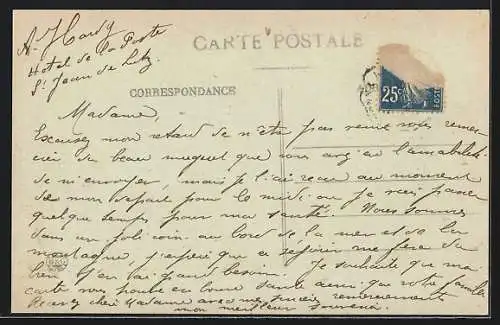 A. Hardy
Hotel de la Poste
St Jean de Luz
CARTE POSTALE
25c
POSTES
CORRESPONDANCE
Madame,
Excusez mon retard de n'être pas venue vous remer
cier du beau muguet que vous avez eu l'amabilité
de m'envoyer, mais je l'ai reçu au moment
de mon départ pour le midi ou je vais passer
quelque temps pour ma santé. Nous sommes
dans un joli coin au bord de la mer et de la
montagne, j'espère que ce séjour me fera du
bien j'en ai grand besoin. Je souhaite que ma
carte vous trouve en bonne santé ainsi que votre famille
Recevez chère Madame avec mes sincères remerciements
mon meilleur souvenir.